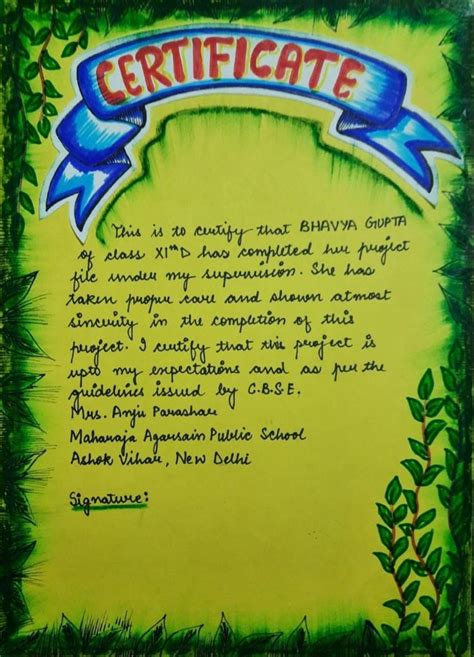 CERTIFICATE
This is to certify that BHAVYA GUPTA
of class XIth D has completed her project
file under my supervision. She has
taken proper care and shown atmost
sincerity in the completion of this
project. I certify that this project is
upto my expectations and as per the
guidelines issued by C.B.S.E.
Mrs. Anju Parashar
Maharaja Agarsain Public School
Ashok Vihar, New Delhi
Signature: